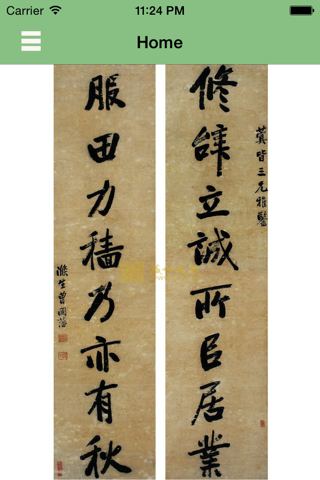 Carrier 11:24 PM
Home
蓂皆三兄雅鑒
修辭立誠所㠯居業
服田力穡乃亦有秋
滌生曾國藩